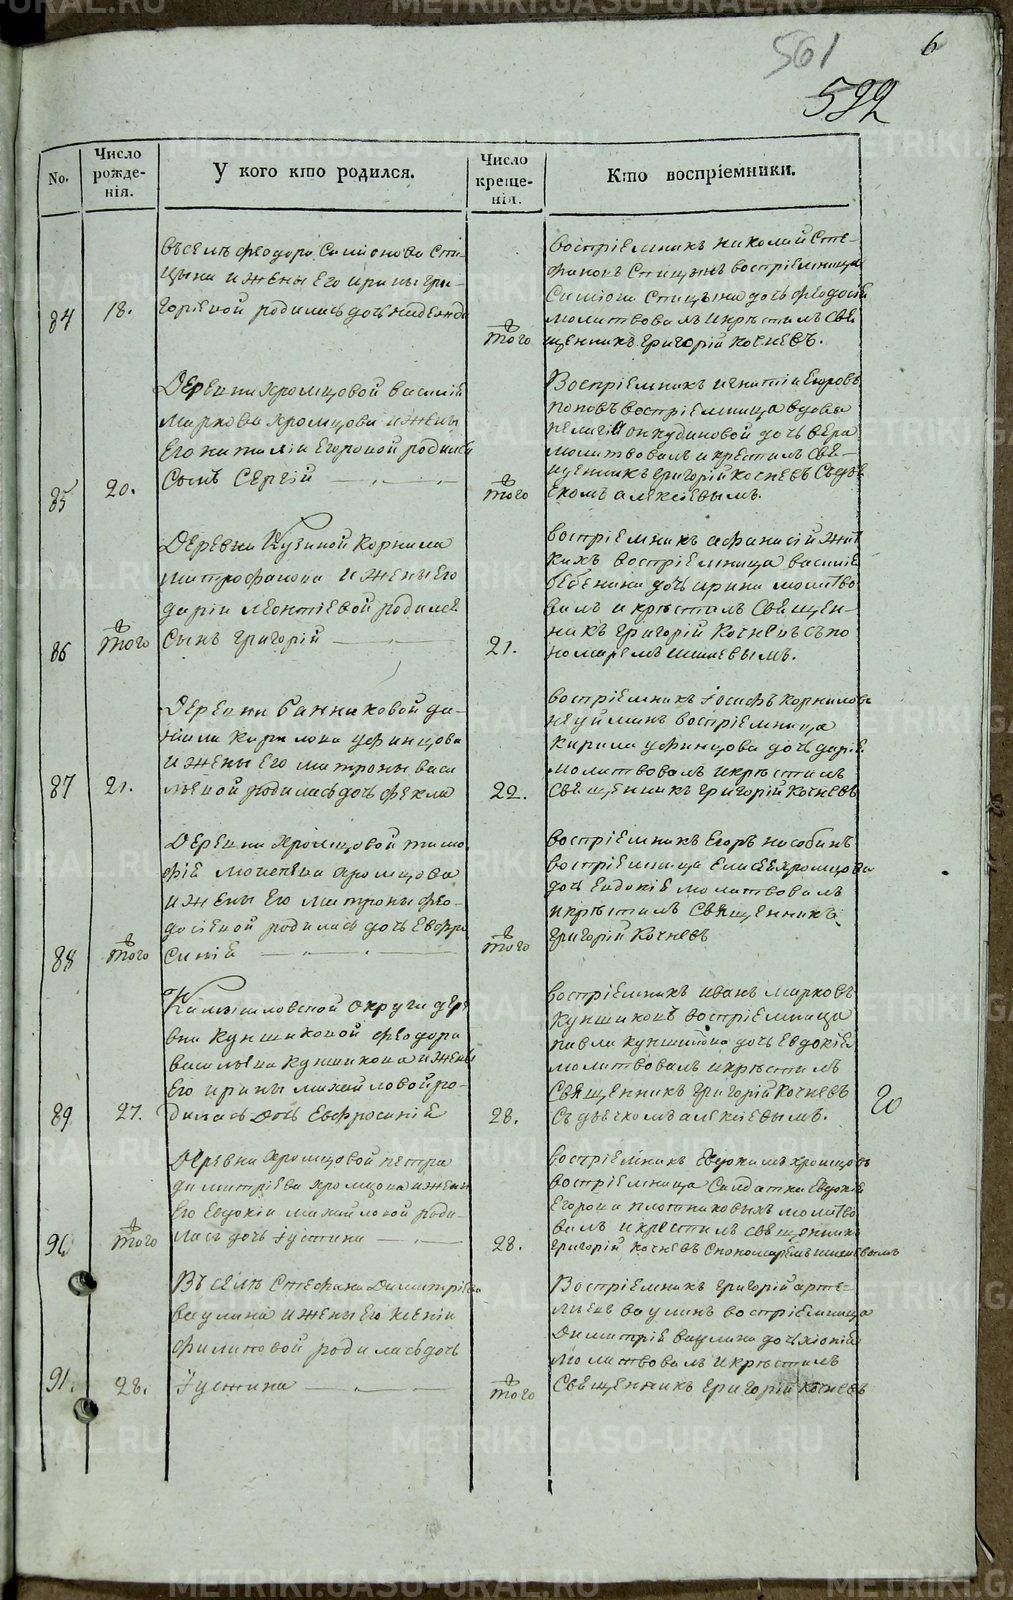 561
6
522
No.
Число рожденія.
У кого кто родился.
Число крещенія.
Кто воспріемники.
84
18.
въ селѣ Феодора Симіонова Спи-
цына и жены его ирины гри-
горіевой родилась дочь надежда
того
воспріемникъ николай Сте-
фановъ Спицынъ воспріемница
Симіона Спицына дочь феодосія
молитвовалъ и крѣстилъ Свя
щенникъ григорій Кочневъ.
85
20.
Деревни Хромцовой василіи
маркова хромцова и жены
его наталіи Егоровой родился
Сынъ Сергій
того
Воспріемникъ игнатіи Егоровъ
поповъ воспріемница вдова
пелагіи дочь вера
молитвовалъ и крестилъ Свя-
щенникъ григорій кочневъ Съ дья
комъ алексеевымъ.
86
того
Деревни Кузиной Корнила
митрофанова и жены его
даріи леонтіевой родился
Сынъ григорій
21.
воспріемникъ афанасій жит
кихъ воспріемница василіе
бебенина дочь ирина молитво
валъ и крѣстилъ Священ-
никъ григорій Кочневъ съ по
номаремъ
87
21.
Деревни банниковой да-
ніила кирилова уфинцова
и жены его матроны васи
льевой родилась дочь фекла
22.
воспріемникъ іосифъ корнилова
неуйминъ воспріемница
кирила уфинцова дочь дарія
молитвовалъ и крѣстилъ
Священникъ григорій Кочневъ
88
того
деревни хромцовой тимо
фіе моисѣева хромцова
и жены его матроны фео-
досіевой родилась дочь евфро
синіе
того
воспріемникъ Егоръ насобинъ
воспріемница хромцова
дочь Евдокіе молитвовалъ
и крѣстилъ Священникъ
григорій Кочневъ
89
27.
Камышловской округи дере
вни кунщиковой феодора
василіева кунщикова и жены
его ирины михайловой ро-
дилась дочь Евфросиніе
28.
воспріемникъ иванъ марковъ
кунщиковъ воспріемница
павла кунщикова дочь Евдокіе
молитвовалъ и крѣстилъ
Священникъ григорій Кочневъ
Съ дьячкомъ алексеевымъ.
20
90
того
Деревни хромцовой петра
димитріева хромцова и жены
его Евдокіи михайловой роди-
лась дочь іустина
28.
воспріемникъ Евдокимъ хромцовъ
воспріемница Салдатка Евдокія
Егорова плотниковыхъ молитво
валъ и крестилъ священникъ
григорій Кочневъ с пономаремъ
91.
28.
Въ селѣ Стефана Димитріева
ваулина и жены его ксеніи
филиповой родилась дочь
іустина
того
Воспріемникъ григорій арте-
мьевъ ваулинъ воспріемница
Димитріе ваулина дочь хіонія
Молитвовалъ и крѣстилъ
Священникъ григорій Кочневъ
METRIKI.GASO-URAL.RU